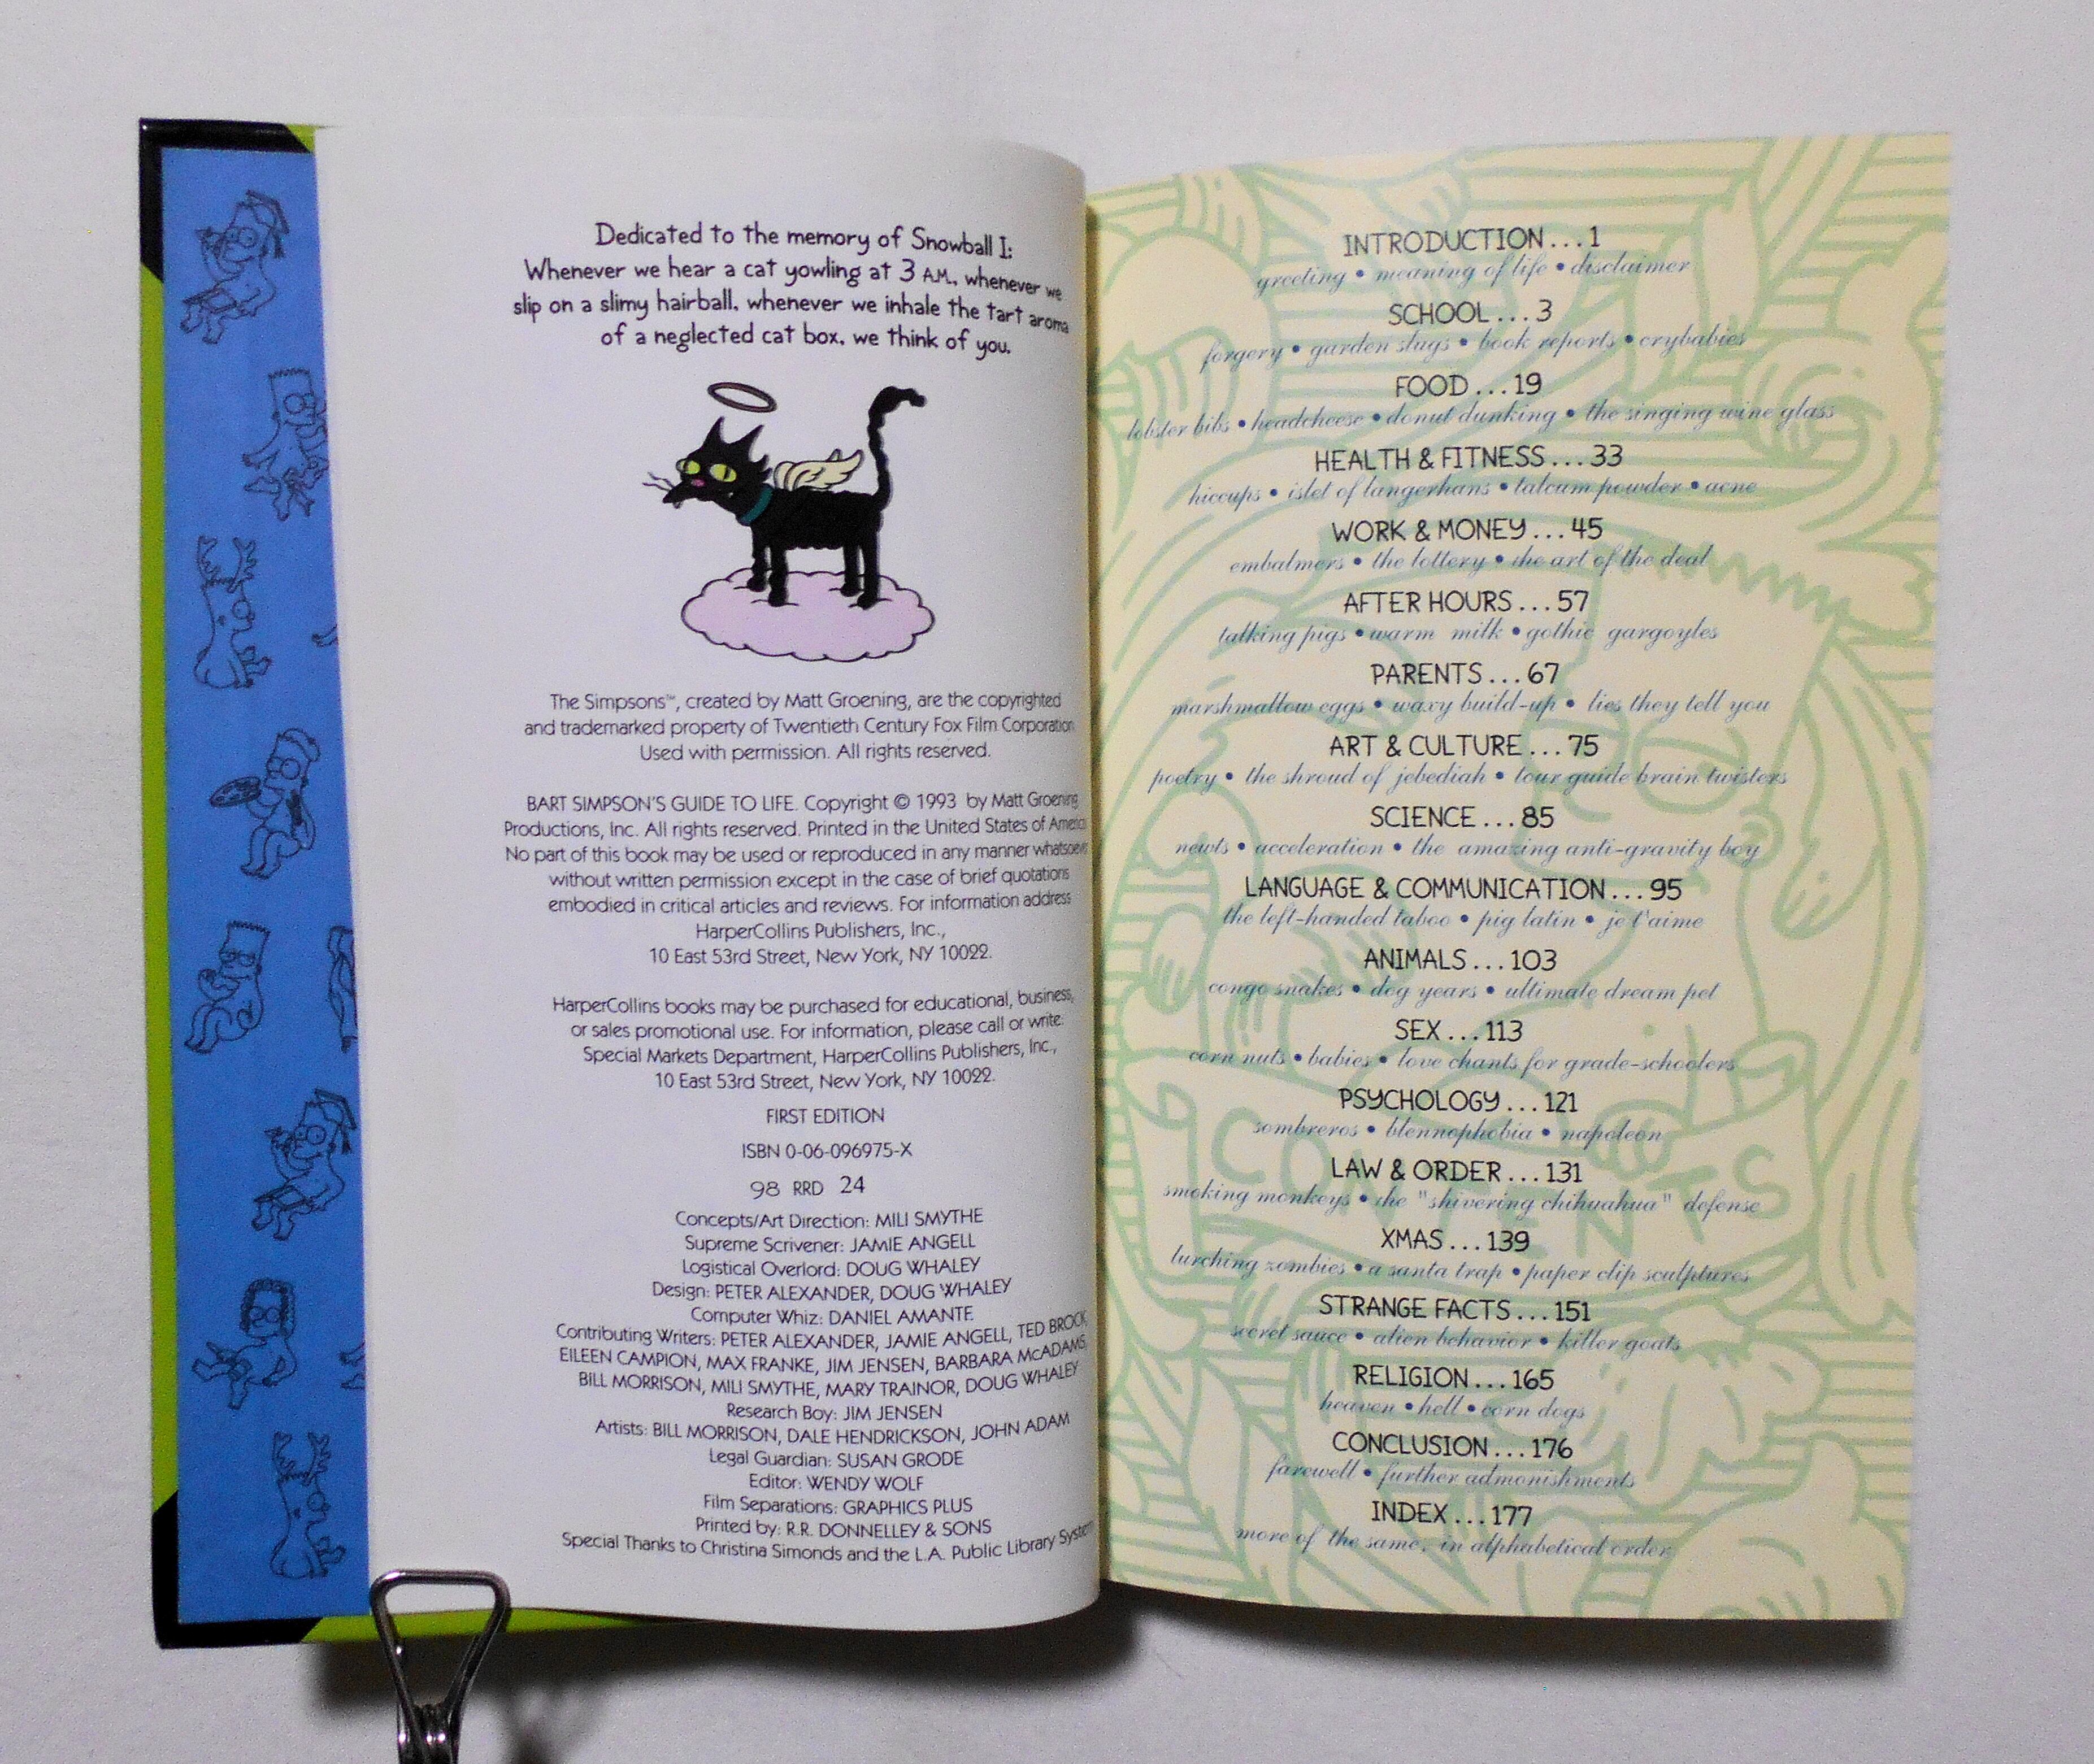 Dedicated to the memory of Snowball I:
Whenever we hear a cat yowling at 3 A.M., whenever we
slip on a slimy hairball, whenever we inhale the tart aroma
of a neglected cat box, we think of you.
The Simpsons™, created by Matt Groening, are the copyrighted
and trademarked property of Twentieth Century Fox Film Corporation
Used with permission. All rights reserved.
BART SIMPSON'S GUIDE TO LIFE. Copyright © 1993 by Matt Groening
Productions, Inc. All rights reserved. Printed in the United States of America
No part of this book may be used or reproduced in any manner whatsoever
without written permission except in the case of brief quotations
embodied in critical articles and reviews. For information address
HarperCollins Publishers, Inc.,
10 East 53rd Street, New York, NY 10022.
HarperCollins books may be purchased for educational, business,
or sales promotional use. For information, please call or write:
Special Markets Department, HarperCollins Publishers, Inc.,
10 East 53rd Street, New York, NY 10022.
FIRST EDITION
ISBN 0-06-096975-X
98 RRD 24
Concepts/Art Direction: MILI SMYTHE
Supreme Scrivener: JAMIE ANGELL
Logistical Overlord: DOUG WHALEY
Design: PETER ALEXANDER, DOUG WHALEY
Computer Whiz: DANIEL AMANTE
Contributing Writers: PETER ALEXANDER, JAMIE ANGELL, TED BROCK,
EILEEN CAMPION, MAX FRANKE, JIM JENSEN, BARBARA McADAMS,
BILL MORRISON, MILI SMYTHE, MARY TRAINOR, DOUG WHALEY
Research Boy: JIM JENSEN
Artists: BILL MORRISON, DALE HENDRICKSON, JOHN ADAM
Legal Guardian: SUSAN GRODE
Editor: WENDY WOLF
Film Separations: GRAPHICS PLUS
Printed by: R.R. DONNELLEY & SONS
Special Thanks to Christina Simonds and the L.A. Public Library System
INTRODUCTION...1
greeting • meaning of life • disclaimer
SCHOOL...3
forgery • garden slugs • book reports • crybabies
FOOD...19
lobster bibs • headcheese • donut dunking • the singing wine glass
HEALTH & FITNESS...33
hiccups • islet of langerhans • talcum powder • acne
WORK & MONEY...45
embalmers • the lottery • the art of the deal
AFTER HOURS...57
talking pigs • warm milk • gothic gargoyles
PARENTS...67
marshmallow eggs • waxy build-up • lies they tell you
ART & CULTURE...75
poetry • the shroud of jebediah • tour guide brain twisters
SCIENCE...85
newts • acceleration • the amazing anti-gravity boy
LANGUAGE & COMMUNICATION...95
the left-handed taboo • pig latin • je t'aime
ANIMALS...103
congo snakes • dog years • ultimate dream pet
SEX...113
corn nuts • babies • love chants for grade-schoolers
PSYCHOLOGY...121
sombreros • blennophobia • napoleon
LAW & ORDER...131
smoking monkeys • the "shivering chihuahua" defense
XMAS...139
lurching zombies • a santa trap • paper clip sculptures
STRANGE FACTS...151
secret sauce • alien behavior • killer goats
RELIGION...165
heaven • hell • corn dogs
CONCLUSION...176
farewell • further admonishments
INDEX...177
more of the same, in alphabetical order
CONTENTS